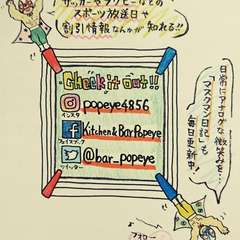 サッカーやラグビーなどの
スポーツ放送日や
割引情報なんかが知れる!!
Check it out!!
popeye4856
インスタ
Kitchen&BarPopeye
フェイスブック
@bar_popeye
ツイッター
日常にアナログな微笑みを…
「マスクマン日記」も
毎日更新中!
フォロー